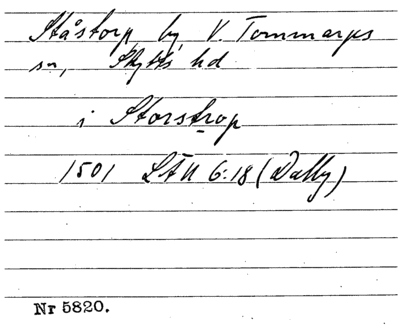 Ståstorp by, V. Tommarps
sn, Skytts hd
i Storstrop
1501 LÄU 6:18 (Dalby)
Nr 5820.